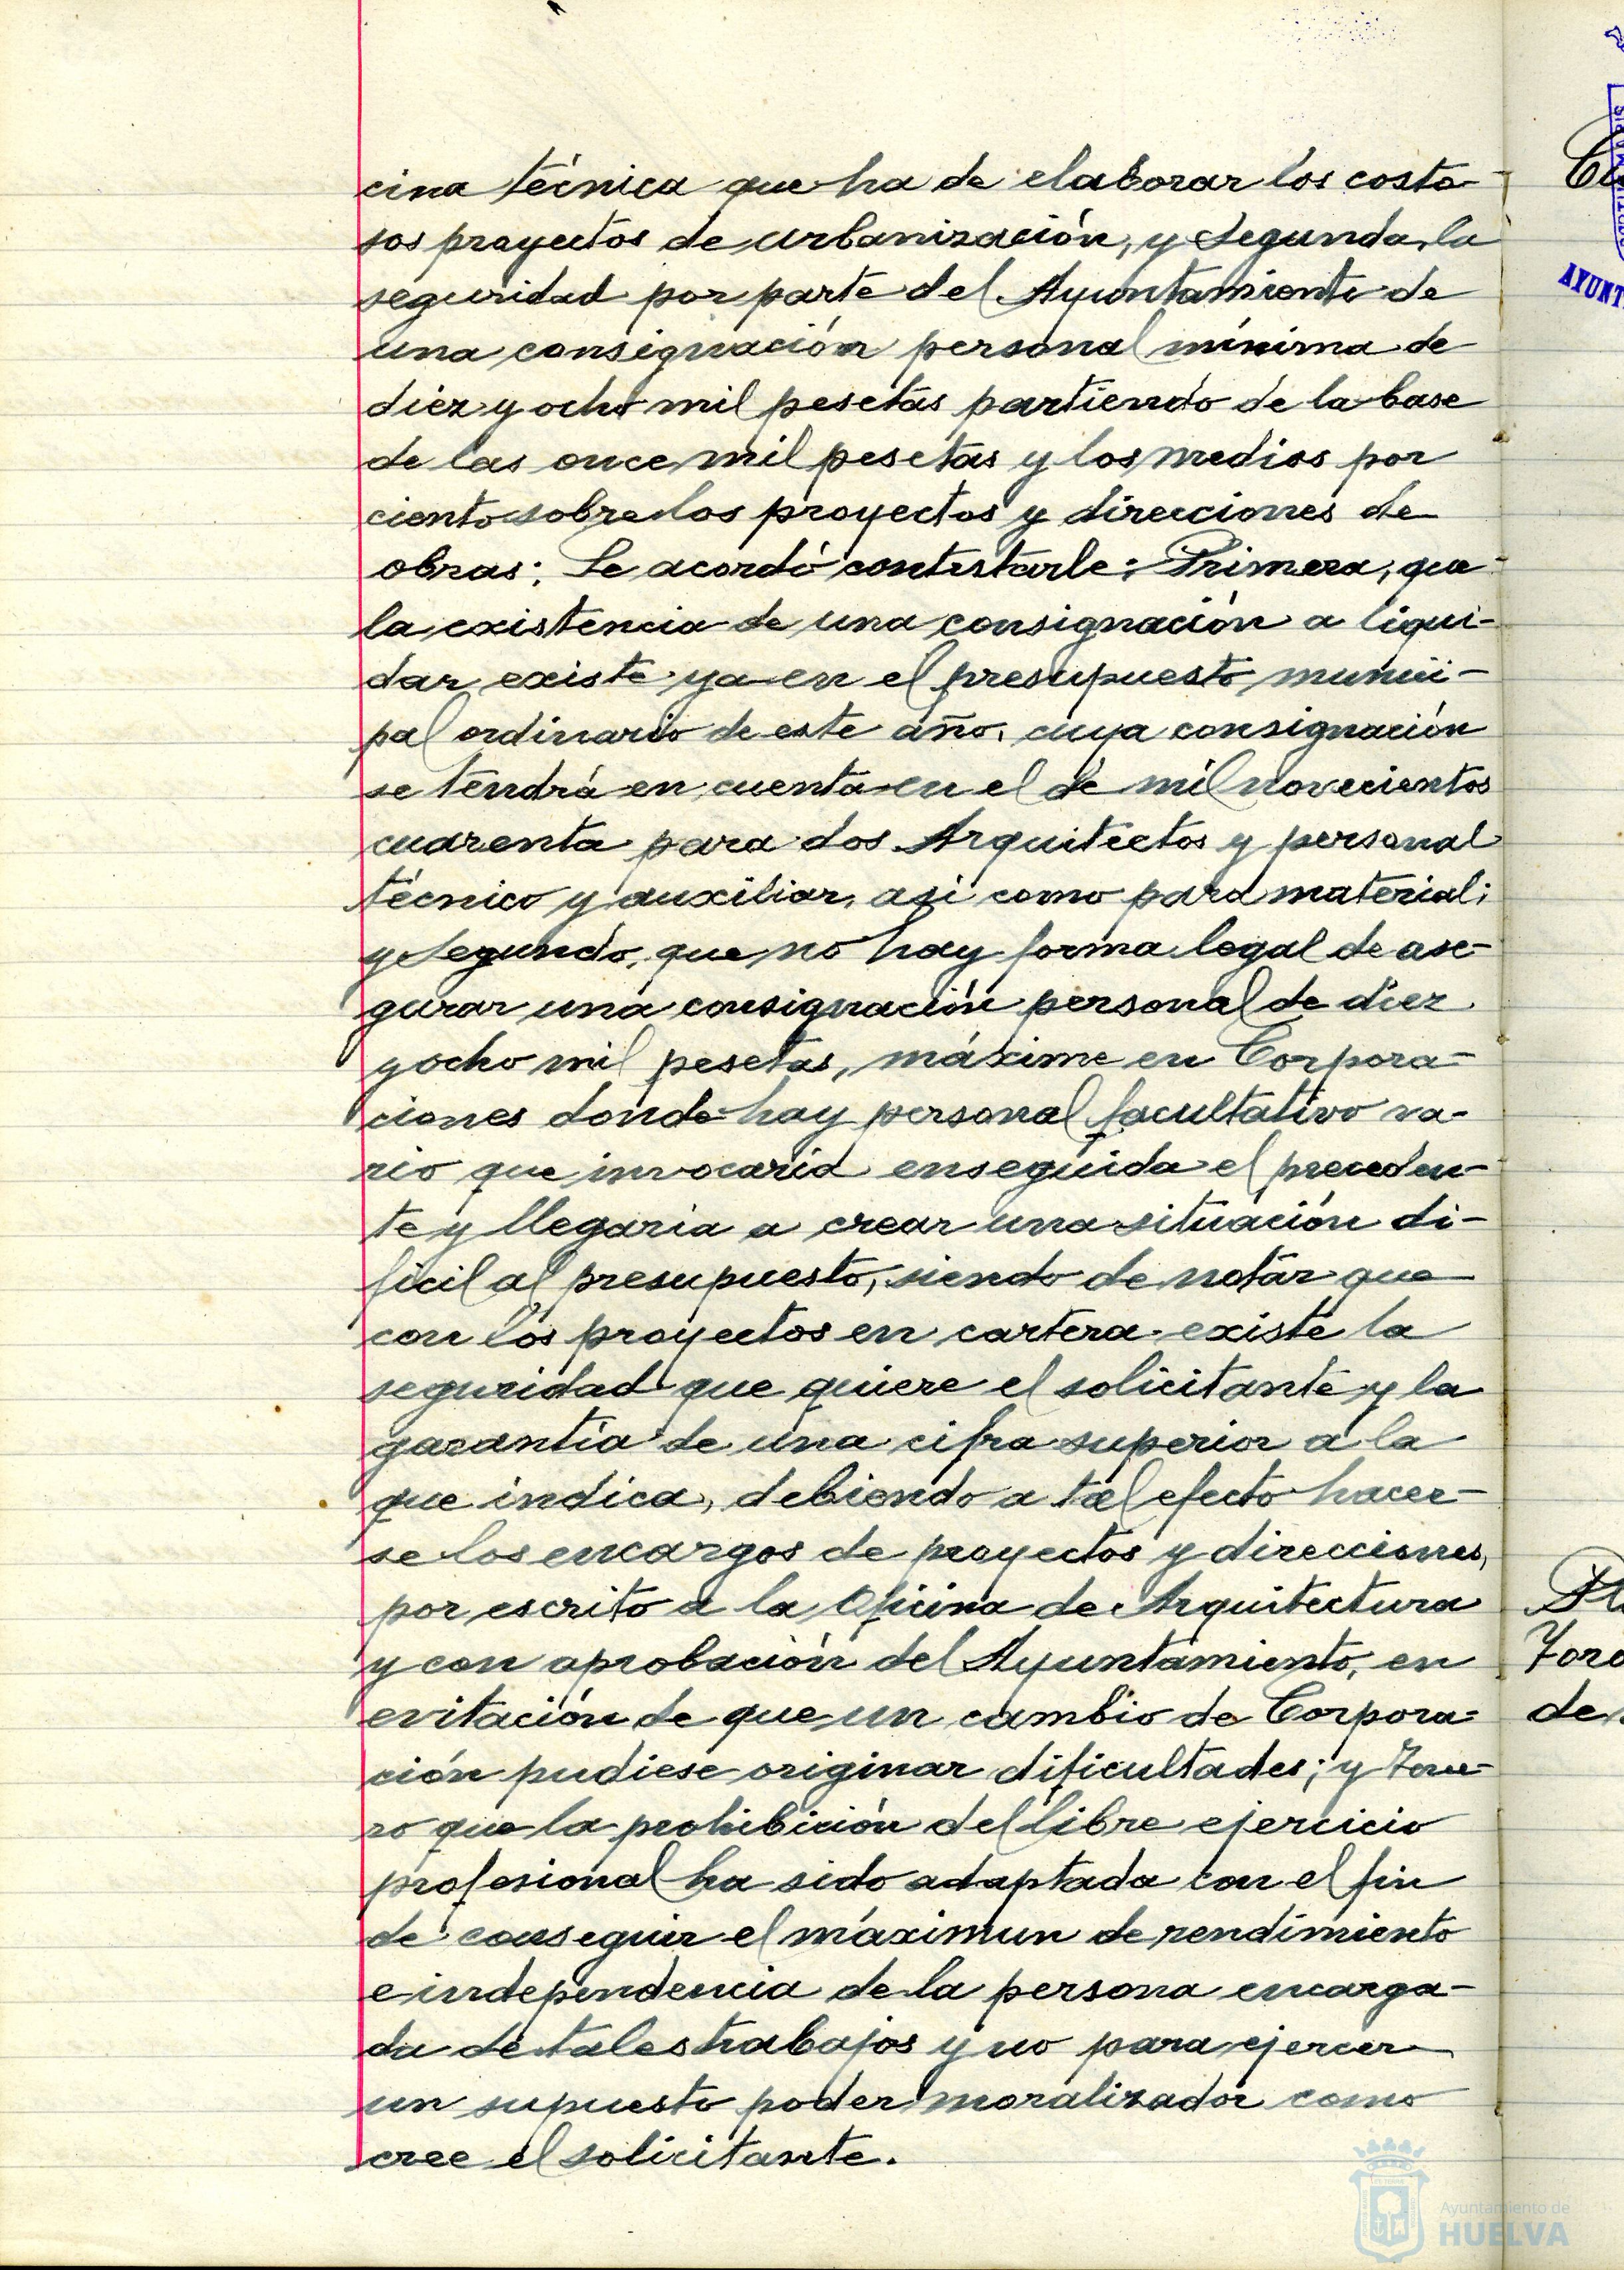 cina técnica que ha de elaborar los costo-
sos proyectos de urbanización, y segunda, la
seguridad por parte del Ayuntamiento de
una consignación personal mínima de
diez y ocho mil pesetas partiendo de la base
de las once mil pesetas y los medios por
ciento sobre los proyectos y direcciones de
obras: Se acordó contestarle: Primera, que
la existencia de una consignación a liqui-
dar, existe ya en el presupuesto munici-
pal ordinario de este año, cuya consignación
se tendrá en cuenta en el de mil novecientos
cuarenta para dos Arquitectos y personal
técnico y auxiliar, asi como para material;
y Segundo, que no hay forma legal de ase-
gurar una consignación personal de diez
y ocho mil pesetas, máxime en Corpora-
ciones donde hay personal facultativo va-
rio que invocaria enseguida el preceden-
te y llegaria a crear una situación di-
ficil al presupuesto, siendo de notar que
con los proyectos en cartera existe la
seguridad que quiere el solicitante y la
garantía de una cifra superior a la
que indica, debiendo a tal efecto hacer-
se los encargos de proyectos y direcciones,
por escrito a la Oficina de Arquitectura
y con aprobación del Ayuntamiento, en
evitación de que un cambio de Corpora-
ción pudiese originar dificultades; y Terce-
ro que la prohibición del libre ejercicio
profesional ha sido adaptada con el fin
de conseguir el máximun de rendimiento
e independencia de la persona encarga-
da de tales trabajos y no para ejercer
un supuesto poder moralizador como
cree el solicitante.
AYUNT
de
Ayuntamiento de
HUELVA